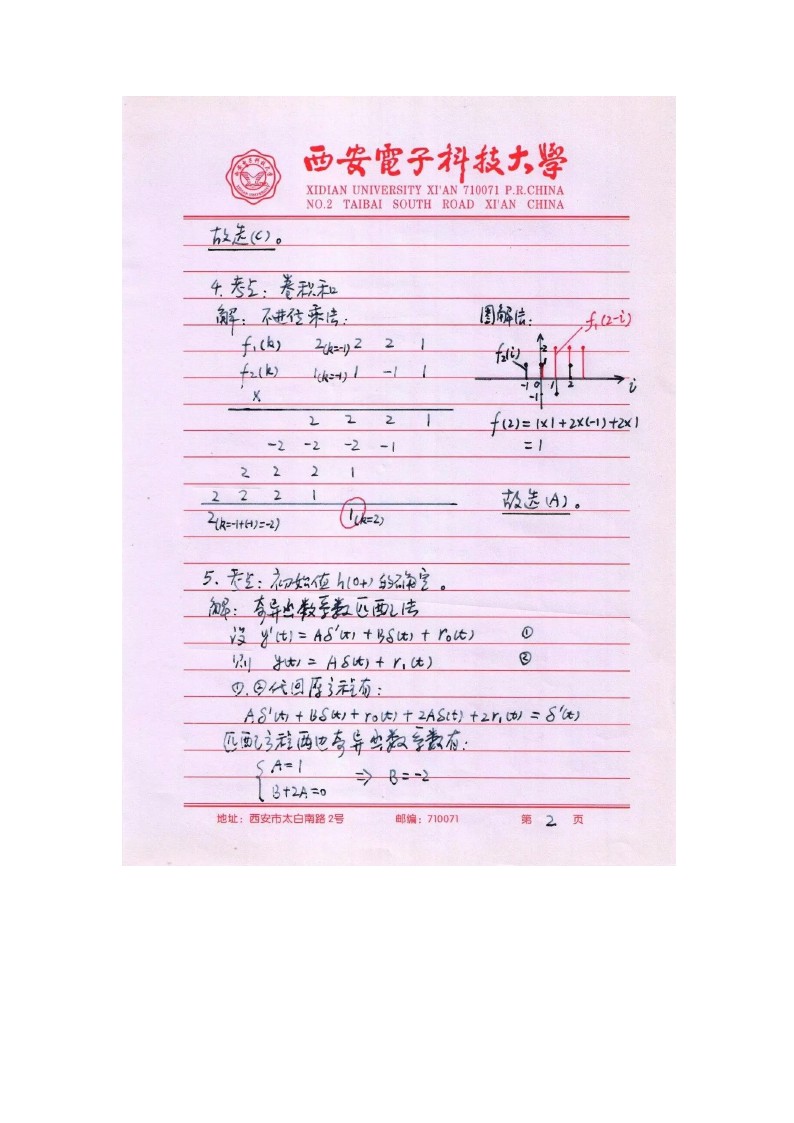 西安電子科技大學
XIDIAN UNIVERSITY XI'AN 710071 P.R.CHINA
NO.2 TAIBAI SOUTH ROAD XI'AN CHINA
故选(C)。
4. 考点: 卷积和
解: 不进位乘法:
f₁(k) 2(k=-1) 2 2 1
f₂(k) 1(k=-1) 1 -1 1
×
2 2 2 1
-2 -2 -2 -1
2 2 2 1
2 2 2 1
2(k=-1+(-1)=-2) 1(k=2)
图解法:
f₁(2-i)
f₂(i)
2
-1 0 1 2 i
-1
f(2)=1×1+2×(-1)+2×1
=1
故选(A)。
5. 考点: 初始值h(0+)的确定。
解: 奇异函数系数匹配法
设 y'(t) = Aδ'(t) + Bδ(t) + r₀(t) ①
则 y(t) = Aδ(t) + r₁(t) ②
①.②代回原方程有:
Aδ'(t) + Bδ(t) + r₀(t) + 2Aδ(t) + 2r₁(t) = δ'(t)
匹配方程两边奇异函数系数有:
{ A=1
B+2A=0 ⇒ B=-2
地址: 西安市太白南路2号 邮编: 710071 第 2 页